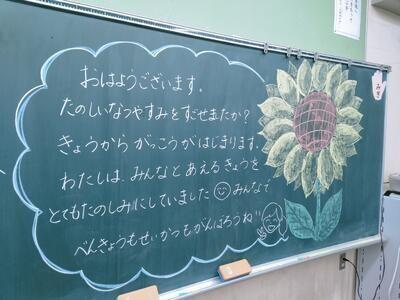 おはようございます。
たのしいなつやすみをすごせましたか?
きょうから がっこうがはじまります。
わたしは、みんなとあえるきょうを
とてもたのしみにしていました☺みんなで
べんきょうもせいかつもがんばろうね!!